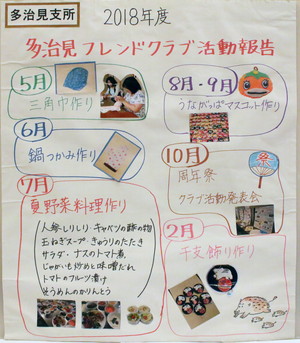 多治見支所
2018年度
多治見フレンドクラブ活動報告
5月
三角巾作り
6月
鍋つかみ作り
7月
夏野菜料理作り
人参しりしり キャベツの酢の物
玉ねぎスープ・きゅうりのたたき
サラダ・ナスのトマト煮
じゃがいも炒めと味噌だれ
トマトのフルーツ漬け
そうめんのかりんとう
8月・9月
うながっぱマスコット作り
10月
周年祭
クラブ活動発表会
祭
2月
干支飾り作り